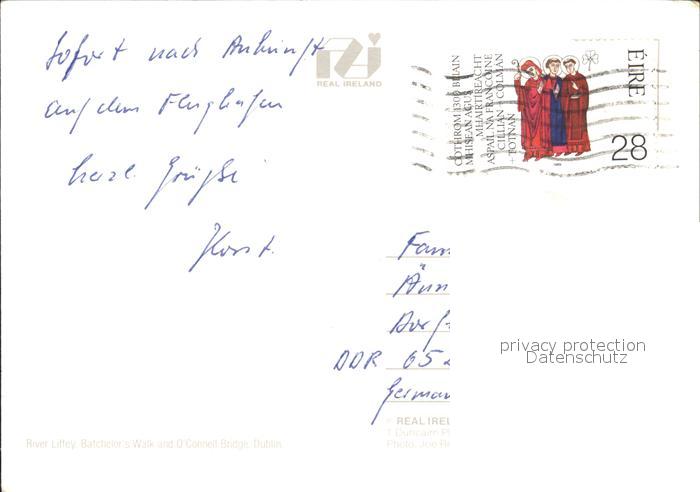 Sofort nach Ankunft
auf dem Flughafen
herzl. Grüße
Horst.
REAL IRELAND
COTHROM 1300 BLIAIN
MHISEAN AGUS
MHAIRTIREACHT
ASPAIL NA FRANCOINE
CILLIAN COLMAN
+ TOTNAN
ÉIRE
28
Fam
Dorf
DDR 65
German
privacy protection
Datenschutz
© REAL IREL
1 Duncairn Pl
Photo. Joe
River Liffey, Batchelor's Walk and O'Connell Bridge, Dublin.